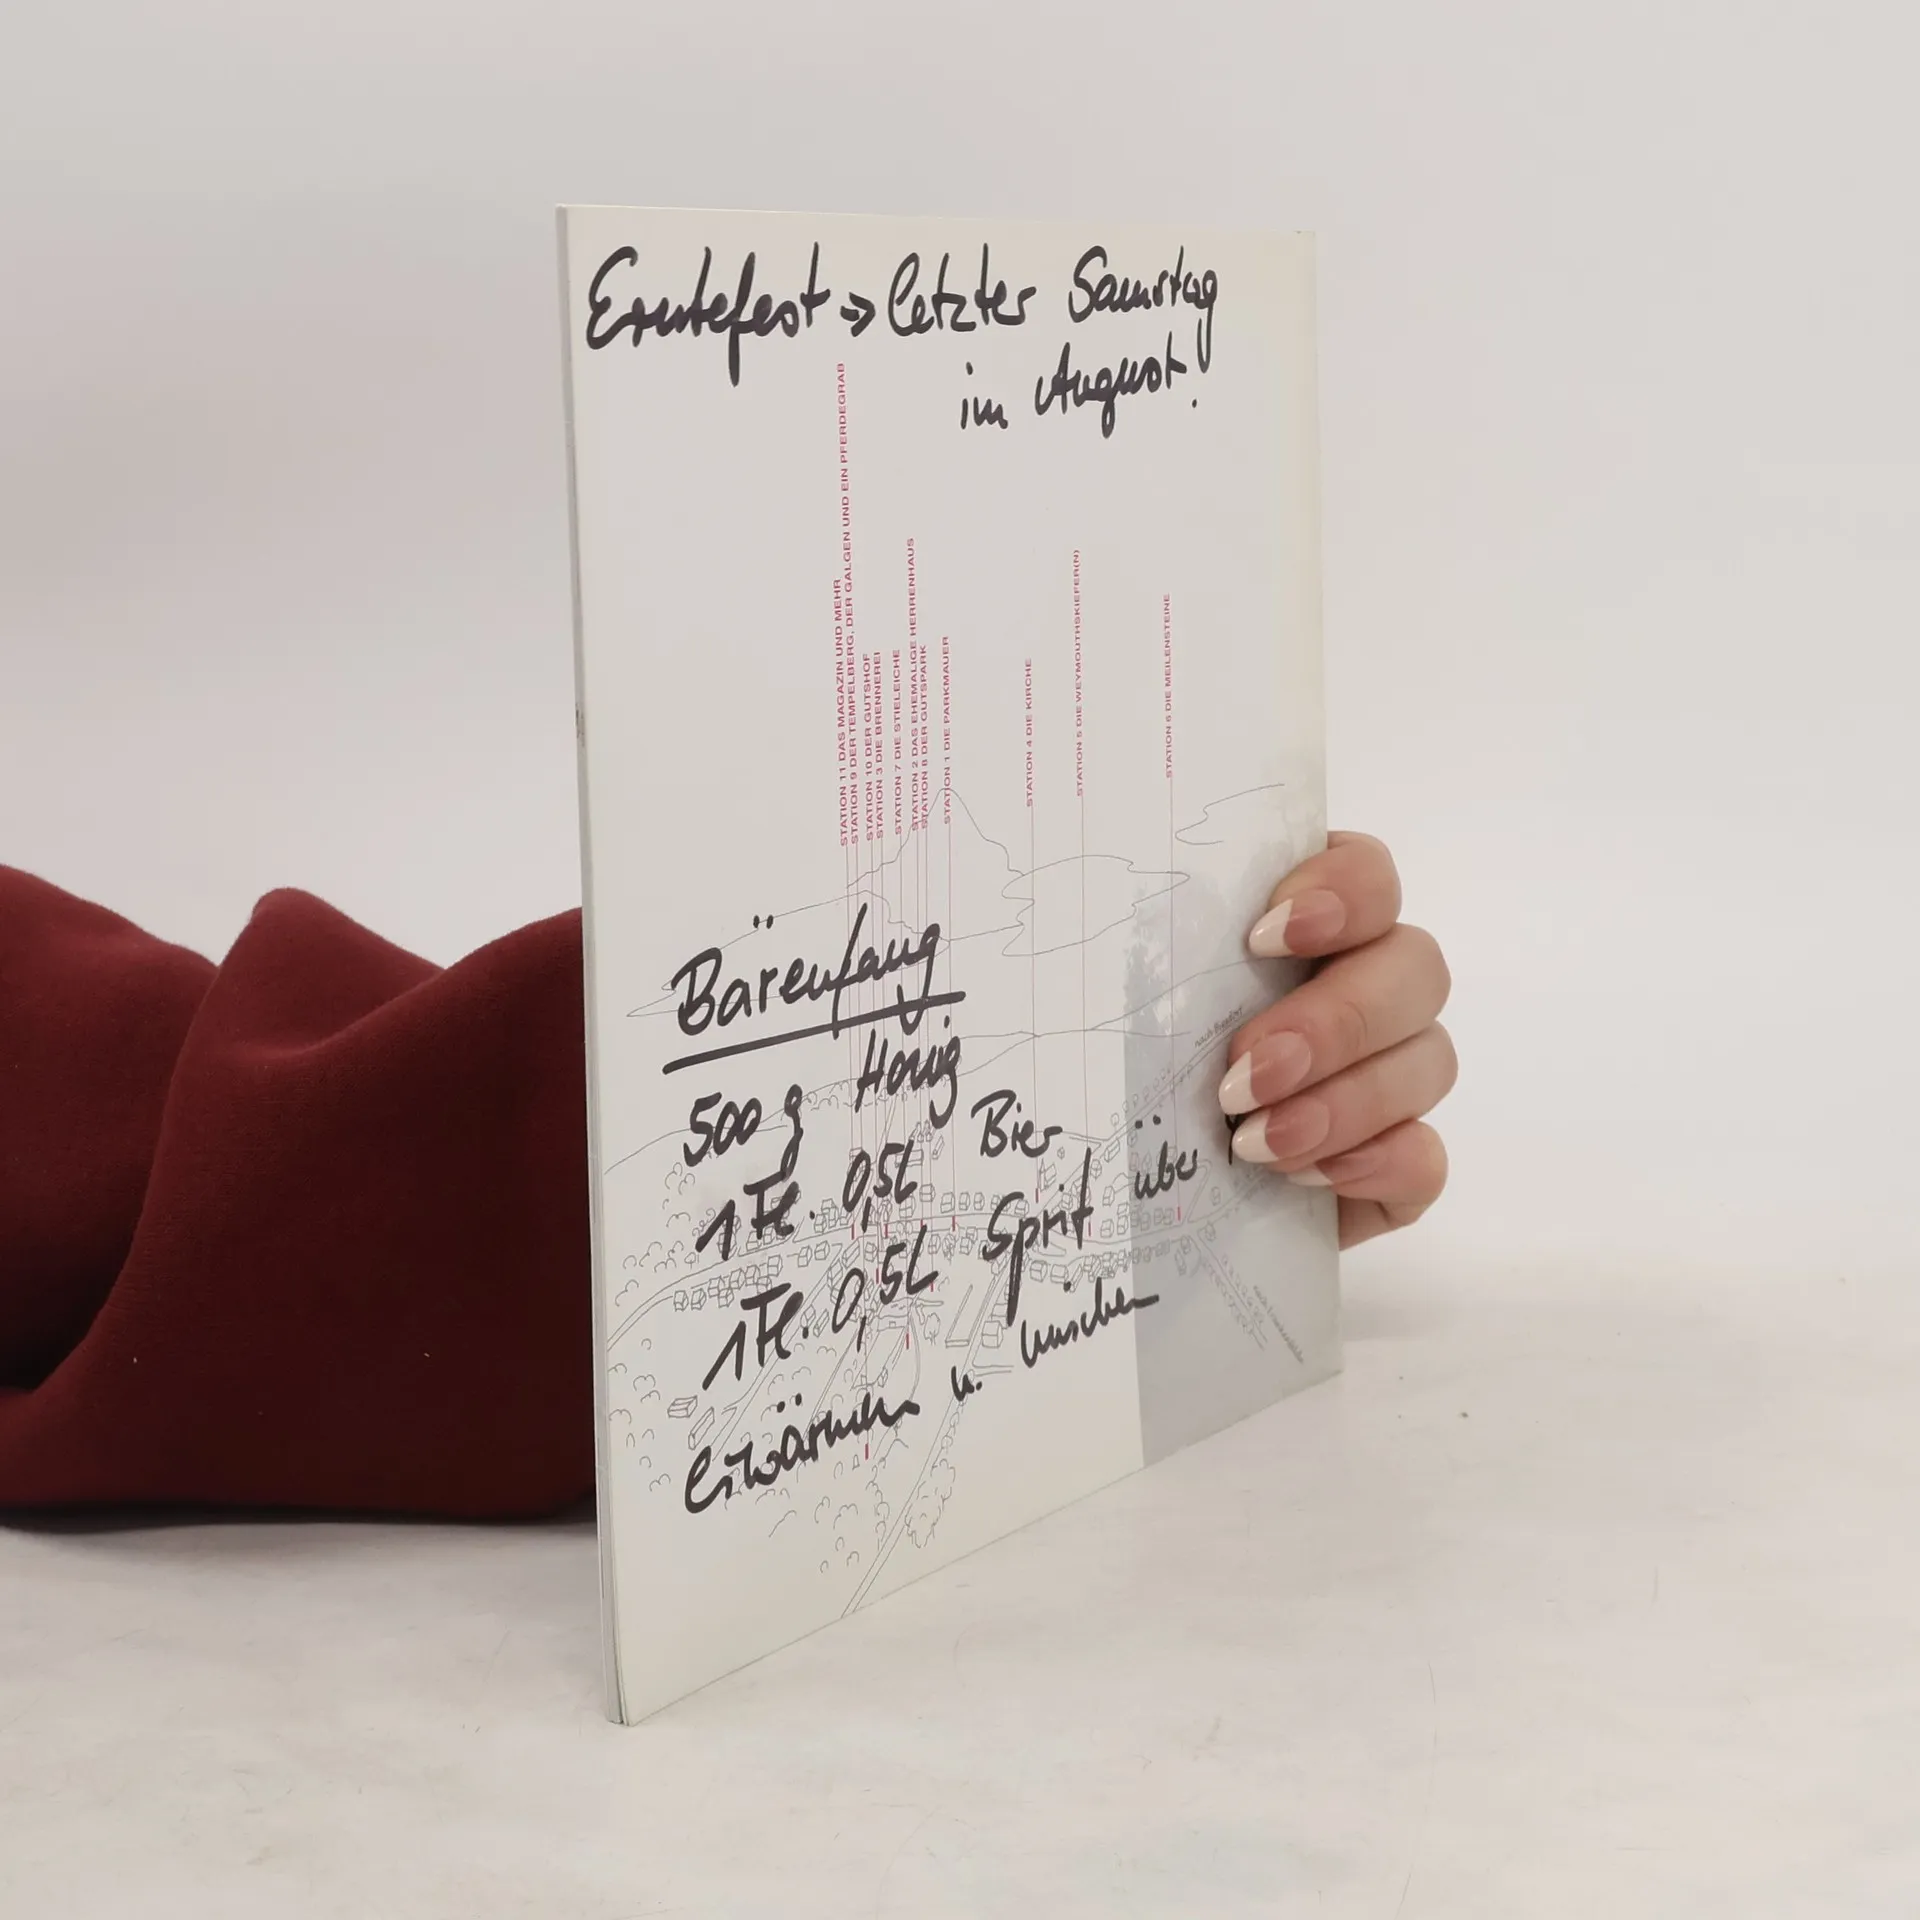 Erntefest → letzter Samstag
im August!
STATION 11 DAS MAGAZIN UND MEHR
STATION 9 DER TEMPELBERG, DER GALGEN UND EIN PFERDEGRAB
STATION 10 DER GUTSHOF
STATION 3 DIE BRENNEREI
STATION 7 DIE STIELEICHE
STATION 2 DAS EHEMALIGE HERRENHAUS
STATION 8 DER GUTSPARK
STATION 1 DIE PARKMAUER
STATION 4 DIE KIRCHE
STATION 5 DIE WEYMOUTHSKIEFER(N)
STATION 6 DIE MEILENSTEINE
Bärenfang
500 g Honig
1 Fl. 0,5L Bier
1 Fl. 0,5L Sprit über
erwärmen u. mischen
nach
nach